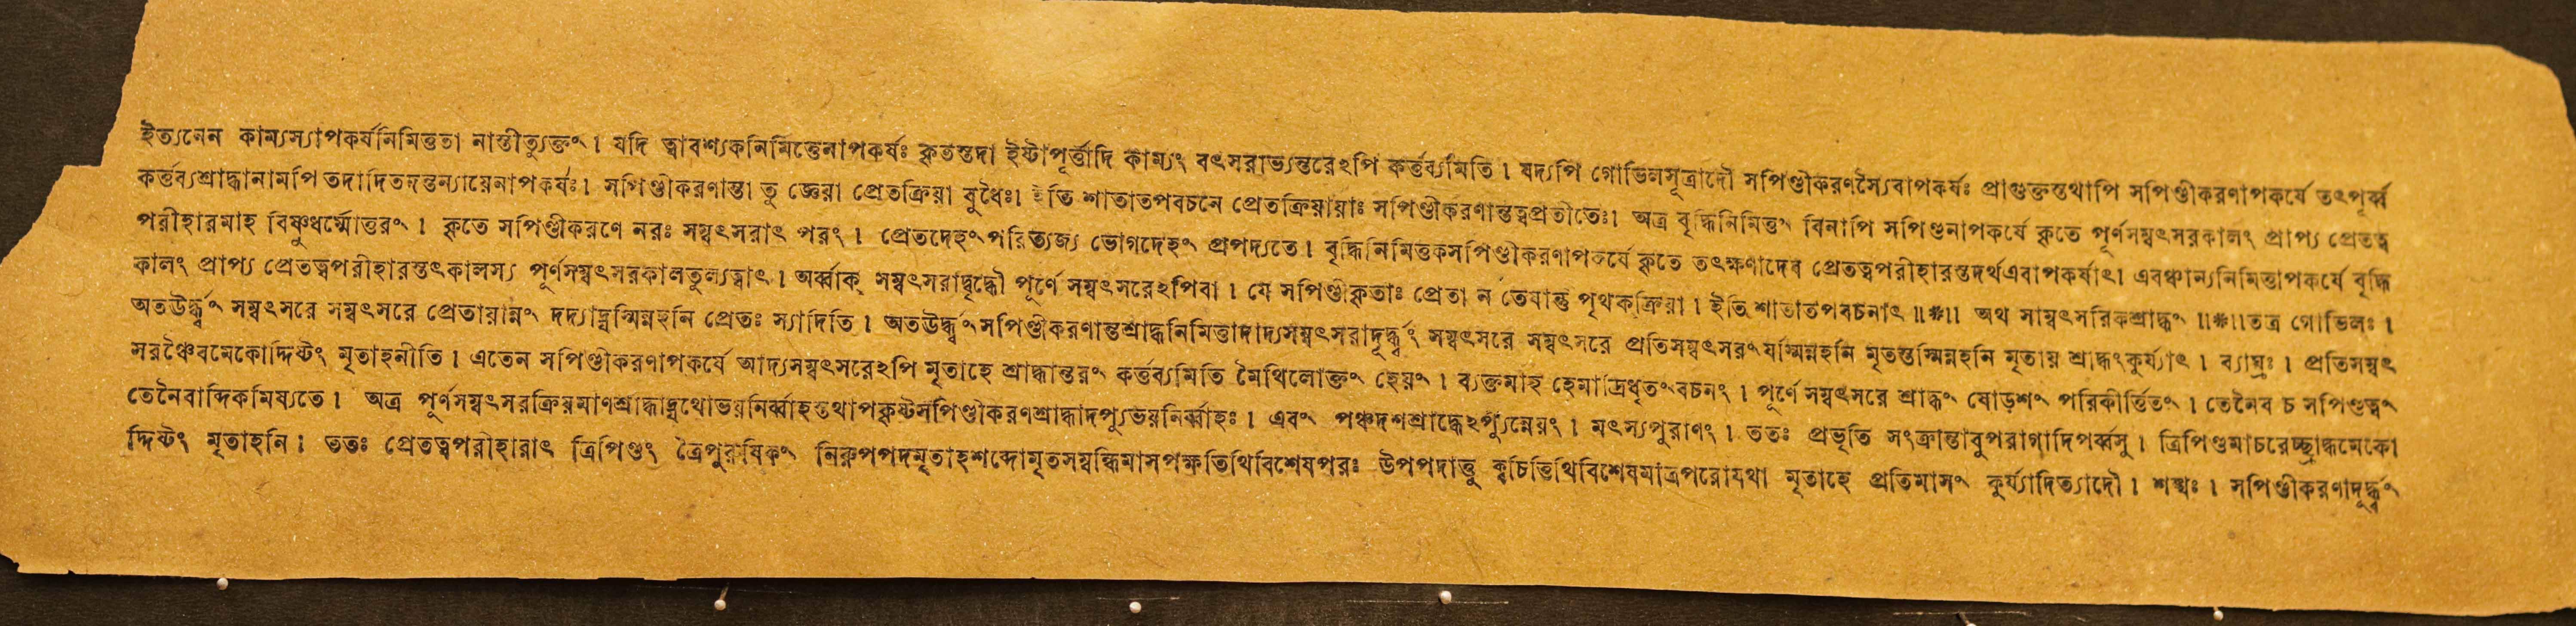 ইত্যনেন কাম্যস্যাপকর্ষনিমিত্ততা নাস্তীত্যুক্তং। যদি ত্বাবশ্যকনিমিত্তেনাপকর্ষঃ কৃতস্তদা ইষ্টাপূর্ত্তাদি কাম্যং বৎসরাভ্যন্তরেঽপি কর্ত্তব্যমিতি। যদ্যপি গোভিলসূত্রাদৌ সপিণ্ডীকরণস্যৈবাপকর্ষঃ প্রাগুক্তস্তথাপি সপিণ্ডীকরণাপকর্ষে তৎপূর্ব্ব
কর্ত্তব্যশ্রাদ্ধানামপি তদাদিতদন্তন্যায়েনাপকর্ষঃ। সপিণ্ডীকরণান্তা তু জ্ঞেয়া প্রেতক্রিয়া বুধৈঃ। ইতি শাতাতপবচনে প্রেতক্রিয়ায়াঃ সপিণ্ডীকরণান্তত্বপ্রতীতেঃ। অত্র বৃদ্ধিনিমিত্তং বিনাপি সপিণ্ডনাপকর্ষে কৃতে পূর্ণসম্বৎসরকালং প্রাপ্য প্রেতত্ব
পরীহারমাহ বিষ্ণুধর্ম্মোত্তরং। কৃতে সপিণ্ডীকরণে নরঃ সম্বৎসরাৎ পরং। প্রেতদেহং পরিত্যজ্য ভোগদেহং প্রপদ্যতে। বৃদ্ধিনিমিত্তকসপিণ্ডীকরণাপকর্ষে কৃতে তৎক্ষণাদেব প্রেতত্বপরীহারস্তদর্থএবাপকর্ষাৎ। এবঞ্চান্যনিমিত্তাপকর্ষে বৃদ্ধি
কালং প্রাপ্য প্রেতত্বপরীহারস্তৎকালস্য পূর্ণসম্বৎসরকালতুল্যত্বাৎ। অর্ব্বাক্ সম্বৎসরাদ্বৃদ্ধৌ পূর্ণে সম্বৎসরেঽপিবা। যে সপিণ্ডীকৃতাঃ প্রেতা ন তেষান্তু পৃথক্‌ক্রিয়া। ইতি শাতাতপবচনাৎ॥*॥ অথ সাম্বৎসরিকশ্রাদ্ধং॥*॥তত্র গোভিলঃ।
অতঊর্দ্ধ্বং সম্বৎসরে সম্বৎসরে প্রেতায়ান্নং দদ্যাদ্যস্মিন্নহনি প্রেতঃ স্যাদিতি। অতঊর্দ্ধ্বং সপিণ্ডীকরণান্তশ্রাদ্ধনিমিত্তাদাদ্যসম্বৎসরাদূর্দ্ধ্বং সম্বৎসরে সম্বৎসরে প্রতিসম্বৎসরং যস্মিন্নহনি মৃতস্তস্মিন্নহনি মৃতায় শ্রাদ্ধংকুর্য্যাৎ। ব্যাঘ্রঃ। প্রতিসম্বৎ
সরঞ্চৈবমেকোদ্দিষ্টং মৃতাহনীতি। এতেন সপিণ্ডীকরণাপকর্ষে আদ্যসম্বৎসরেঽপি মৃতাহে শ্রাদ্ধান্তরং কর্ত্তব্যমিতি মৈথিলোক্তং হেয়ং। ব্যক্তমাহ হেমাদ্রিধৃতংবচনং। পূর্ণে সম্বৎসরে শ্রাদ্ধং ষোড়শং পরিকীর্ত্তিতং। তেনৈব চ সপিণ্ডত্বং
তেনৈবাব্দিকমিষ্যতে। অত্র পূর্ণসম্বৎসরক্রিয়মাণশ্রাদ্ধাদ্যথোভয়নির্ব্বাহস্তথাপকৃষ্টসপিণ্ডীকরণশ্রাদ্ধাদপ্যুভয়নির্ব্বাহঃ। এবং পঞ্চদশশ্রাদ্ধেঽপ্যুন্নেয়ং। মৎস্যপুরাণং। ততঃ প্রভৃতি সংক্রান্তাবুপরাগাদিপর্ব্বসু। ত্রিপিণ্ডমাচরেচ্ছ্রাদ্ধমেকো
দ্দিষ্টং মৃতাহনি। ততঃ প্রেতত্বপরীহারাৎ ত্রিপিণ্ডং ত্রৈপুরুষিকং নিরুপপদমৃতাহশব্দোমৃতসম্বন্ধিমাসপক্ষতিথিবিশেষপরঃ উপপদাত্তু ক্বচিত্তিথিবিশেষমাত্রপরোযথা মৃতাহে প্রতিমাসং কুর্য্যাদিত্যাদৌ। শঙ্খঃ। সপিণ্ডীকরণাদূর্দ্ধ্বং